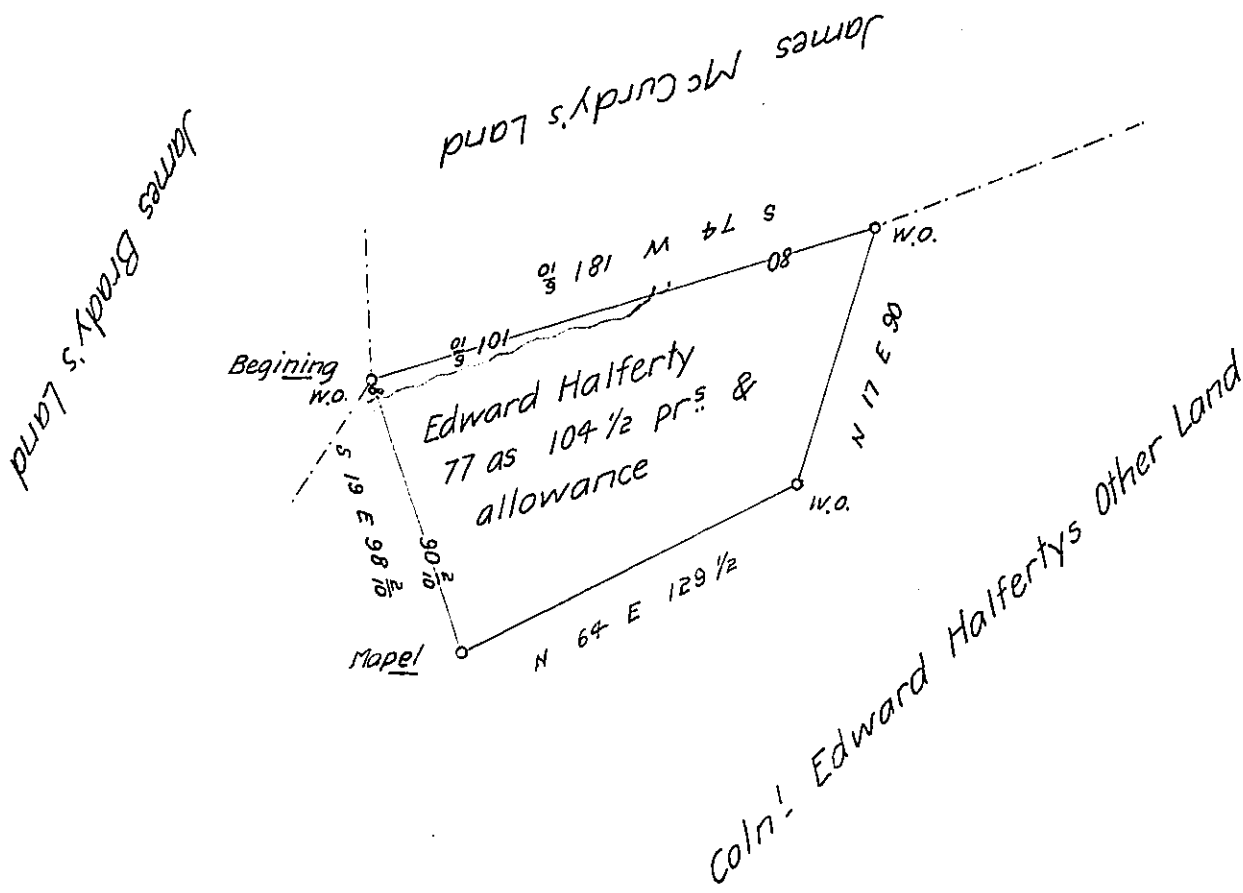 James McCurdy's Land
James Brady's Land
S 74 W 181 6/10
80
W.O.
101 6/10
Begining
W.O.
8
Edward Halferty
77 as 104 1/2 prs &
allowance
N 17 E 90
S 19 E 98 2/10
90 2/10
W.O.
N 64 E 129 1/2
Mapel
Coln! Edward Halfertys Other Land